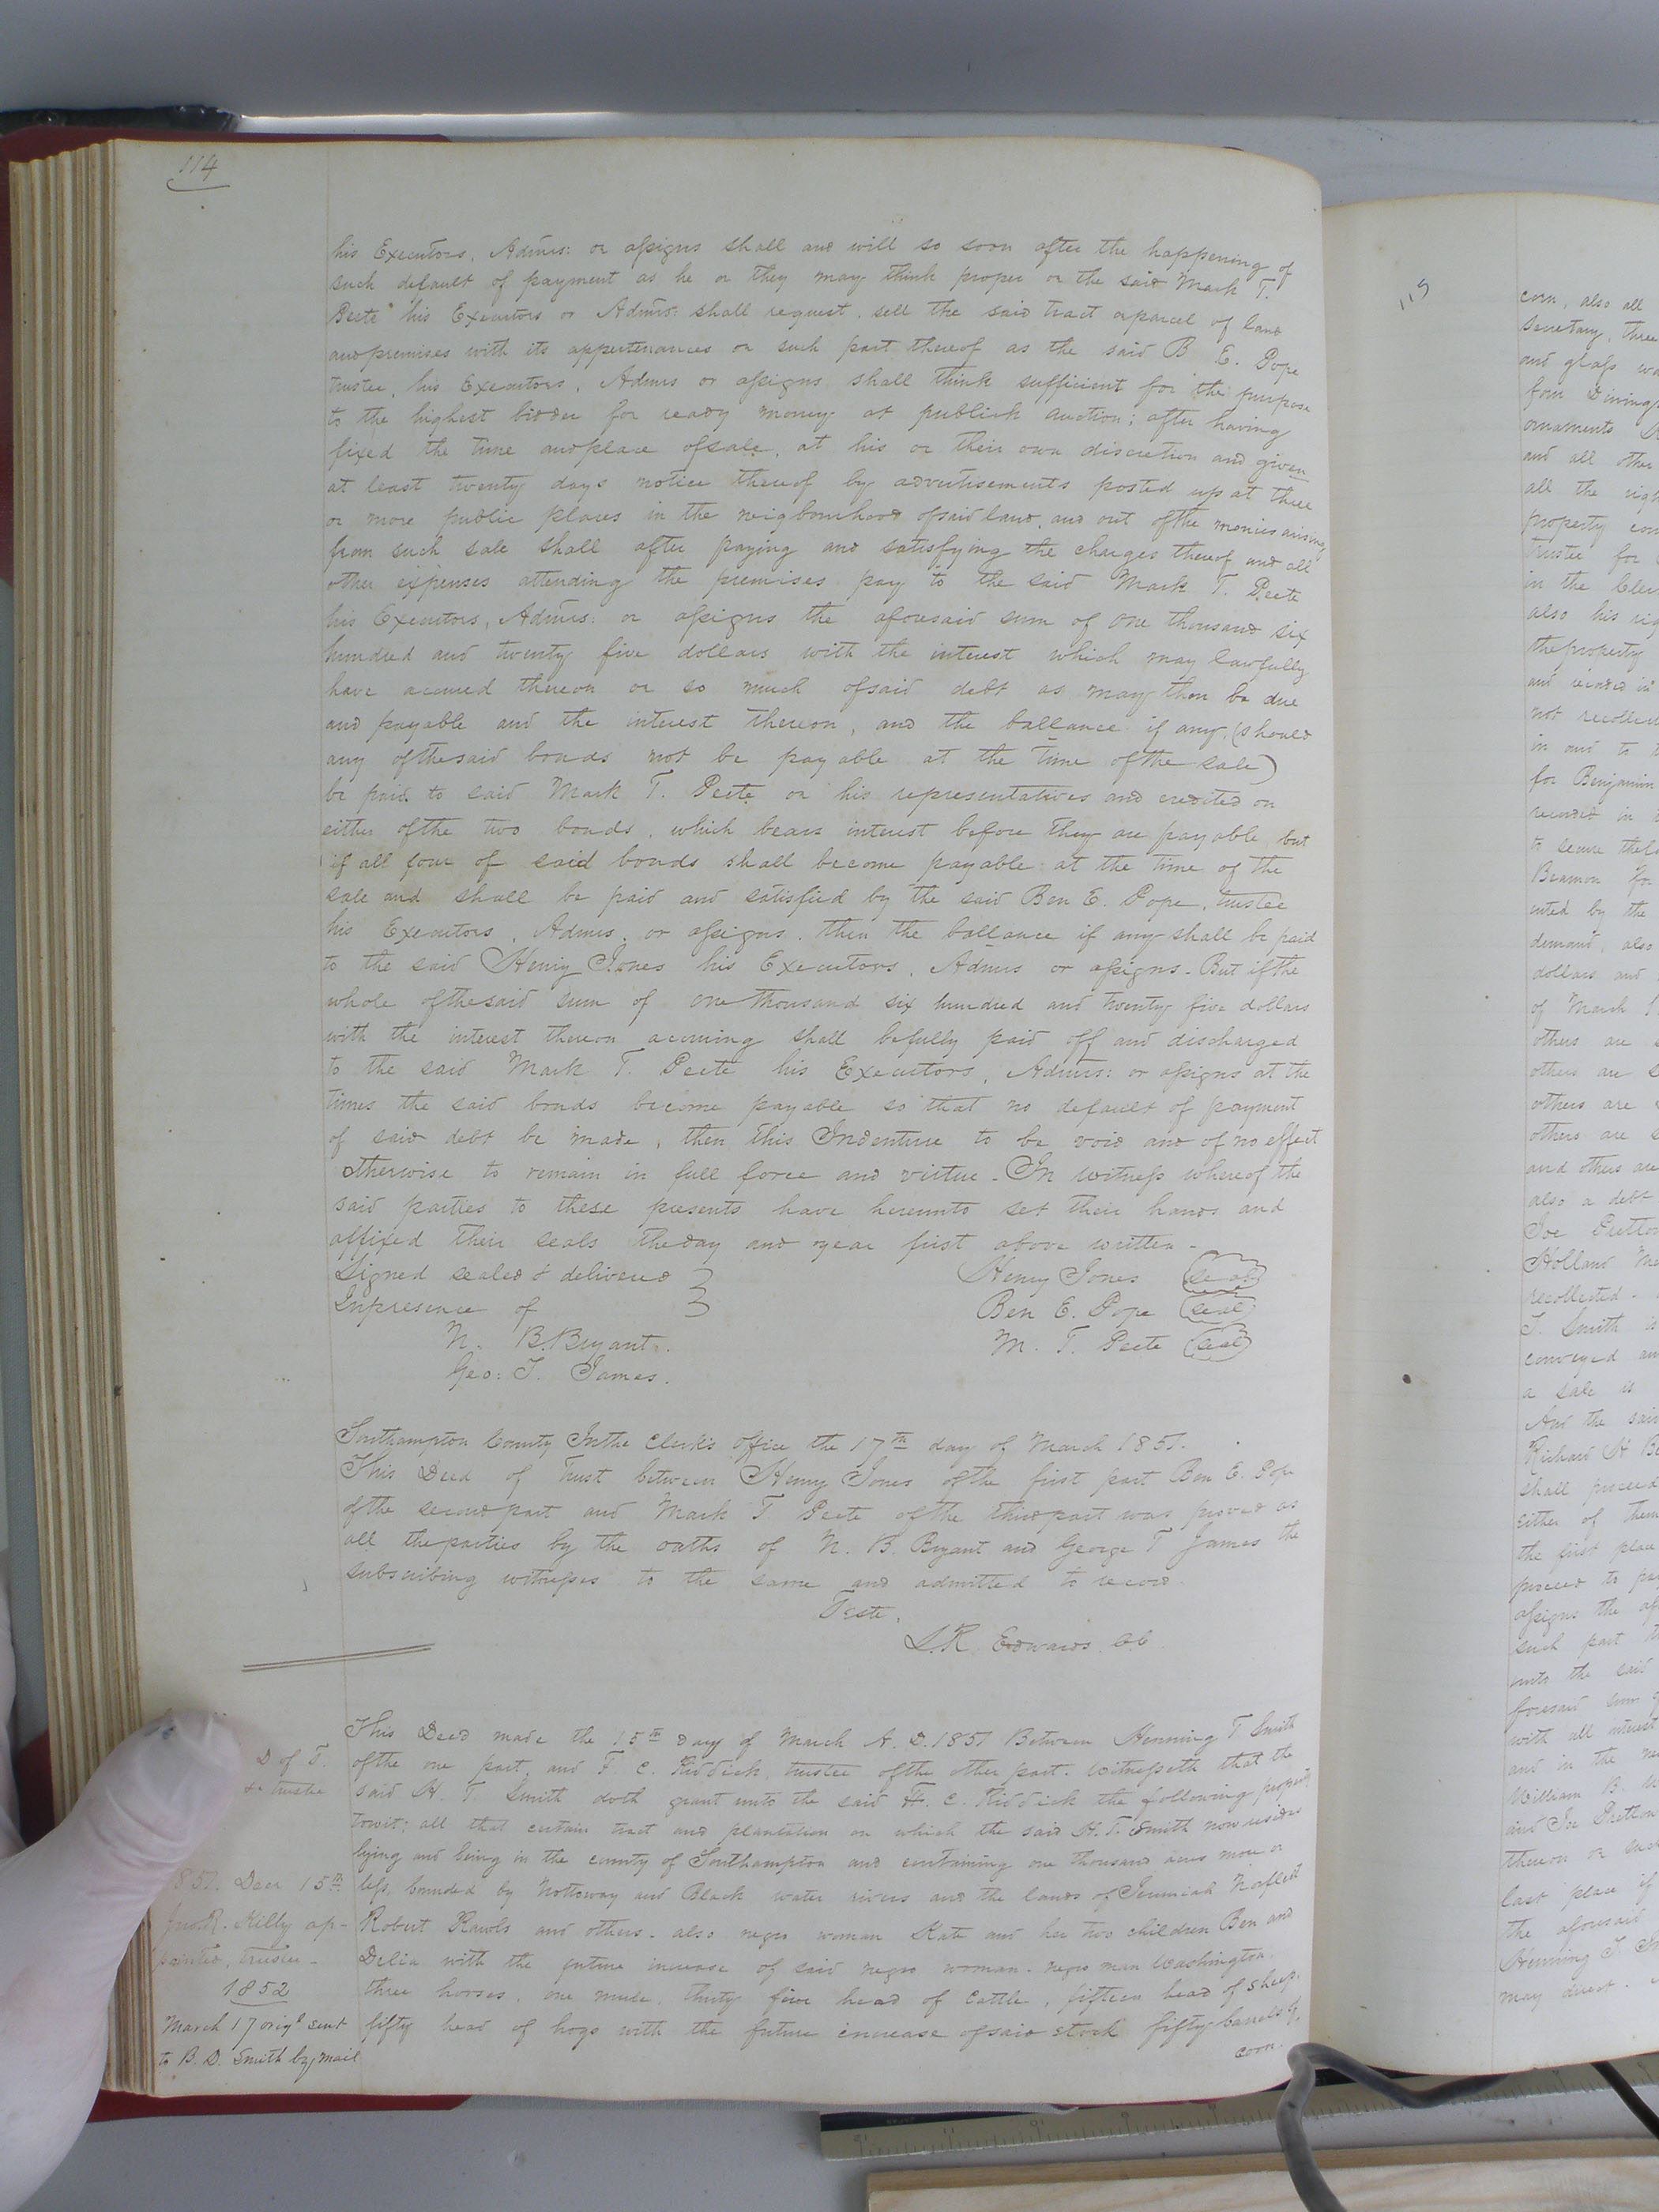 114
his Executors, Admrs: or assigns shall and will so soon after the happening of
such default of payment as he or they may think proper or the said Mark T.
Peete his Executors or Admrs: shall request, sell the said tract or parcel of land
and premises with its appertenances or such part thereof as the said B. E. Pope
trustee, his Executors, Admrs or assigns shall think sufficient for the purpose
to the highest bidder for ready money at publick auction; after having
fixed the time and place of sale, at his or their own discretion and given
at least twenty days notice thereof by advertisements posted up at three
or more public places in the neigbourhood of said land, and out of the monies arising
from such sale shall after paying and satisfying the charges thereof and all
other expenses attending the premises pay to the said Mark T. Peete
his Executors, Admrs: or assigns the aforesaid sum of one thousand six
hundred and twenty five dollars with the interest which may lawfully
have accrued thereon or so much of said debt as may then be due
and payable and the interest thereon, and the ballance if any, (should
any of the said bonds not be payable at the time of the sale)
be paid to said Mark T. Peete or his representatives and credited on
either of the two bonds, which bears interest before they are payable, but
if all four of said bonds shall become payable at the time of the
sale and shall be paid and satisfied by the said Ben E. Pope, trustee
his Executors, Admrs, or assigns, then the ballance if any shall be paid
to the said Henry Jones his Executors, Admrs or assigns - But if the
whole of the said sum of one thousand six hundred and twenty five dollars
with the interest thereon accruing shall be fully paid off and discharged
to the said Mark T. Peete his Executors, Admrs: or assigns at the
times the said bonds become payable so that no default of payment
of said debt be made, then this Indenture to be void and of no effect
otherwise to remain in full force and virtue - In witness whereof the
said parties to these presents have hereunto set their hands and
affixed their seals the day and year first above written -
Signed sealed & delivered Henry Jones (seal)
In presence of Ben E. Pope (seal)
N. B. Bryant. M. T. Peete (seal)
Geo: T. James.
Southampton County In the Clerk's office the 17th day of March 1851.
This Deed of Trust between Henry Jones of the first part Ben E. Pope
of the second part and Mark T. Peete of the third part was proved as
all the parties by the oaths of N. B. Bryant and George T James the
subscribing witnesses to the same and admitted to record.
Teste,
L. R. Edwards. C. C.
This Deed made the 15th day of March A. D. 1851 Between Henning T Smith
of the one part, and F. C. Riddick trustee of the other part. Witnesseth that the
said H. T. Smith doth grant unto the said F. C. Riddick the following property
towit; all that certain tract and plantation on which the said H. T. Smith now resides
lying and being in the county of Southampton and containing one thousand acres more or
less, bounded by Nottoway and Black water rivers and the lands of Jeremiah Norfleet
Robert Rawls and others - also negro woman Kate and her two children Ben and
Delia with the future increase of said negro woman - negro man Washington
three horses, one mule, thirty five head of Cattle, fifteen head of sheep,
fifty head of hogs with the future increase of said stock fifty barrels of
corn.
D of T.
trustee
Decr 15th
Jno. R. Killy ap-
pointed, trustee -
1852
March 17 origl sent
to B. D. Smith by mail
115
corn, also all
secretary, three
and glass
four Dining
ornaments
and all other
all the
property
trustee for
in the
also his
the property
and recorded in
not
in and to
for Benjamin
recorded in
to secure the
Beamon for
by the
demand, also
dollars and
of March
others are
others are
others are
others are
and others are
also a debt
Joe Pretlow
Holland
recollected -
T. Smith
conveyed
a sale is
And the said
Richard H
shall proceed
either of them
the first place
proceed to pay
assigns the
such part
unto the said
foresaid sum
with all interest
and in the
William B.
and Joe Pretlow
thereon or
last place if
the aforesaid
Henning T.
may direct.